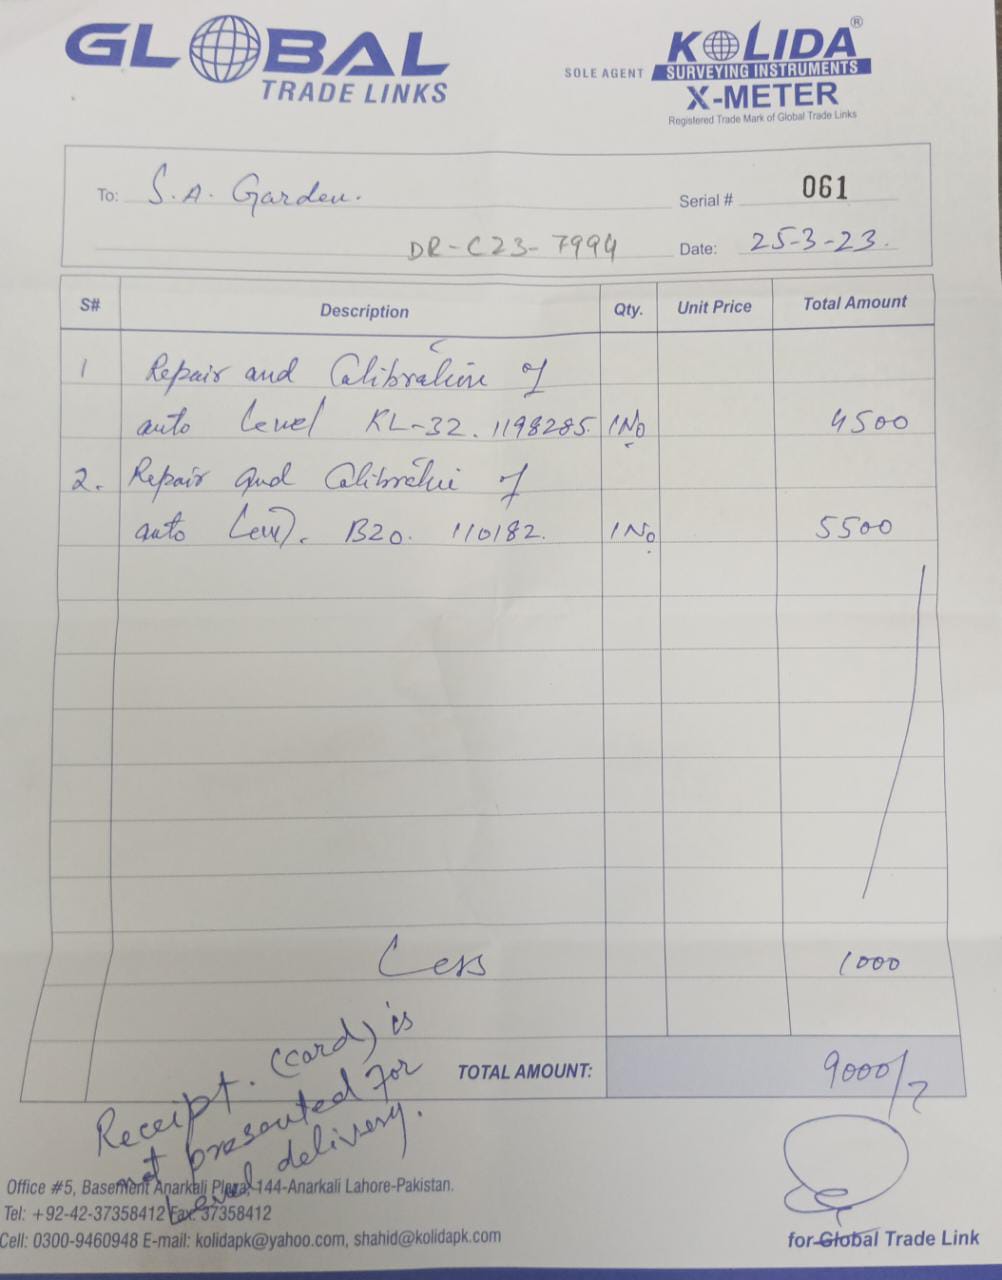 GLOBAL
TRADE LINKS
SOLE AGENT
KOLIDA®
SURVEYING INSTRUMENTS
X-METER
Registered Trade Mark of Global Trade Links
To: S.A. Garden.
Serial # 061
DR-C23-7994
Date: 25-3-23.
S# Description Qty. Unit Price Total Amount
1 Repair and Calibration of
auto level KL-32. 1198285. 1No 4500
2. Repair and Calibration of
auto level. B20. 110182. 1No 5500
Less 1000
TOTAL AMOUNT: 9000/-
Receipt. (card) is
not presented for
level delivery.
Office #5, Basement Anarkali Plaza, 144-Anarkali Lahore-Pakistan.
Tel: +92-42-37358412 Fax: 37358412
Cell: 0300-9460948 E-mail: kolidapk@yahoo.com, shahid@kolidapk.com
for Global Trade Link